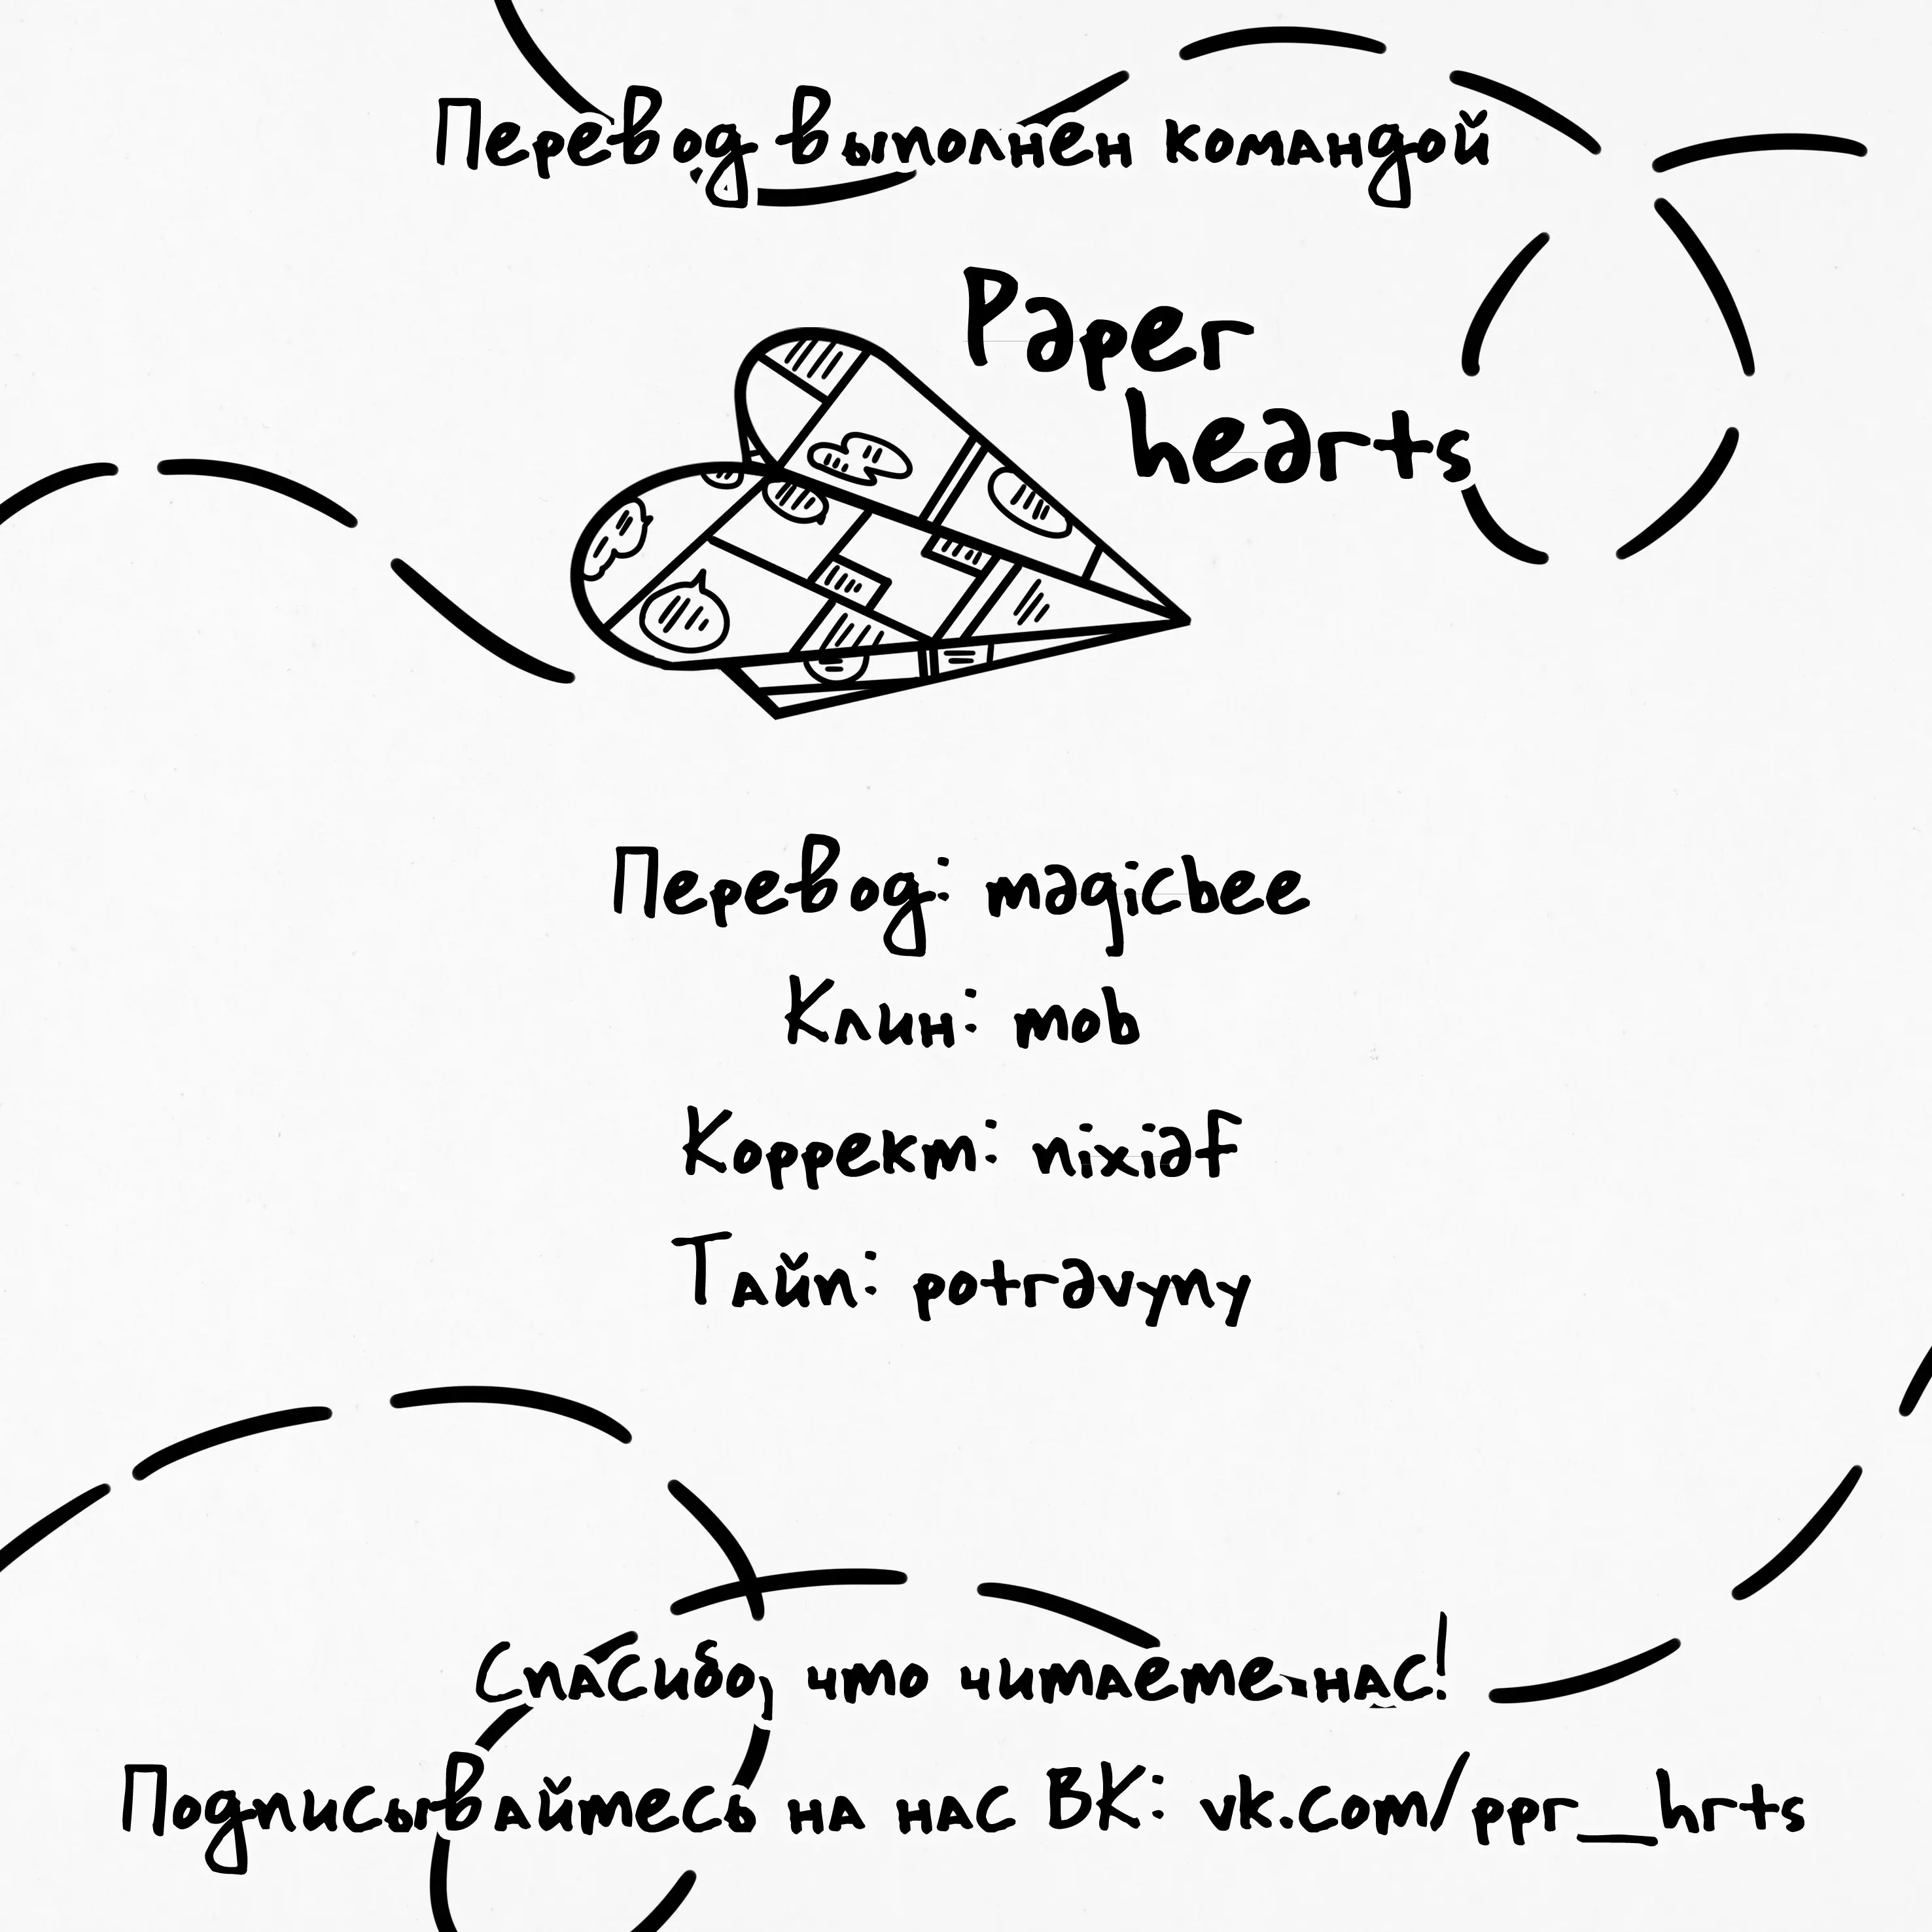 Перевод выполнен командой
Paper
hearts
Перевод: magicbee
Клин: mob
Коррект: nixiaf
Тайп: potravyny
Спасибо, что читаете нас!
Подписывайтесь на нас ВК: vk.com/ppr__hrts